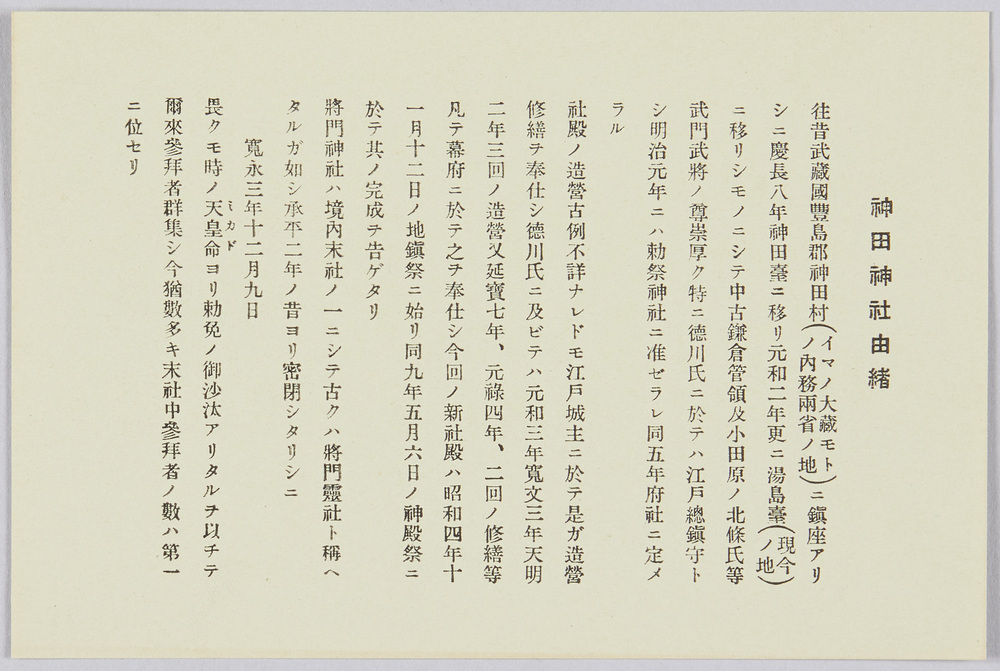 神田神社由緒
往昔武藏國豐島郡神田村(イマノ大藏モトノ內務兩省ノ地)ニ鎭座アリ
シニ慶長八年神田臺ニ移リ元和二年更ニ湯島臺(現今ノ地)
ニ移リシモノニシテ中古鎌倉管領及小田原ノ北條氏等
武門武將ノ尊崇厚ク特ニ德川氏ニ於テハ江戶總鎭守ト
シ明治元年ニハ勅祭神社ニ准ゼラレ同五年府社ニ定メ
ラル
社殿ノ造營古例不詳ナレドモ江戶城主ニ於テ是ガ造營
修繕ヲ奉仕シ德川氏ニ及ビテハ元和三年寬文三年天明
二年三回ノ造營又延寶七年、元祿四年、二回ノ修繕等
凡テ幕府ニ於テ之ヲ奉仕シ今回ノ新社殿ハ昭和四年十
一月十二日ノ地鎭祭ニ始リ同九年五月六日ノ神殿祭ニ
於テ其ノ完成ヲ告ゲタリ
將門神社ハ境內末社ノ一ニシテ古クハ將門靈社ト稱ヘ
タルガ如シ承平二年ノ昔ヨリ密閉シタリシニ
寬永三年十二月九日
畏クモ時ノ天皇命ヨリ勅免ノ御沙汰アリタルヲ以チテ
ミカド
爾來參拜者群集シ今猶數多キ末社中參拜者ノ數ハ第一
ニ位セリ